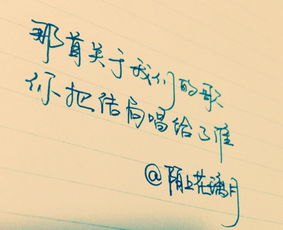 那首关于我们的歌
你把结局唱给了谁
@陌上花满月